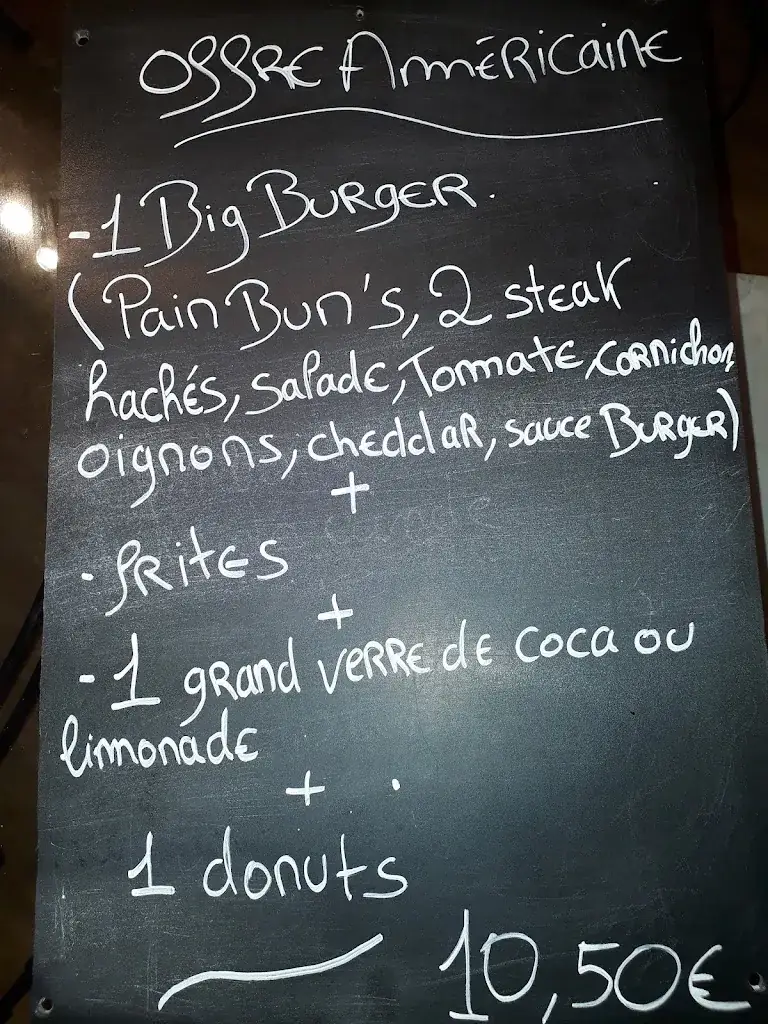 OFFRE AMÉRICAINE
-1 Big BURGER.
(Pain Bun's, 2 steak
hachés, salade, Tomate, cornichon
oignons, cheddar, sauce BURGER)
+
· frites
+
-1 grand verre de coca ou
limonade
+
1 donuts
10,50€